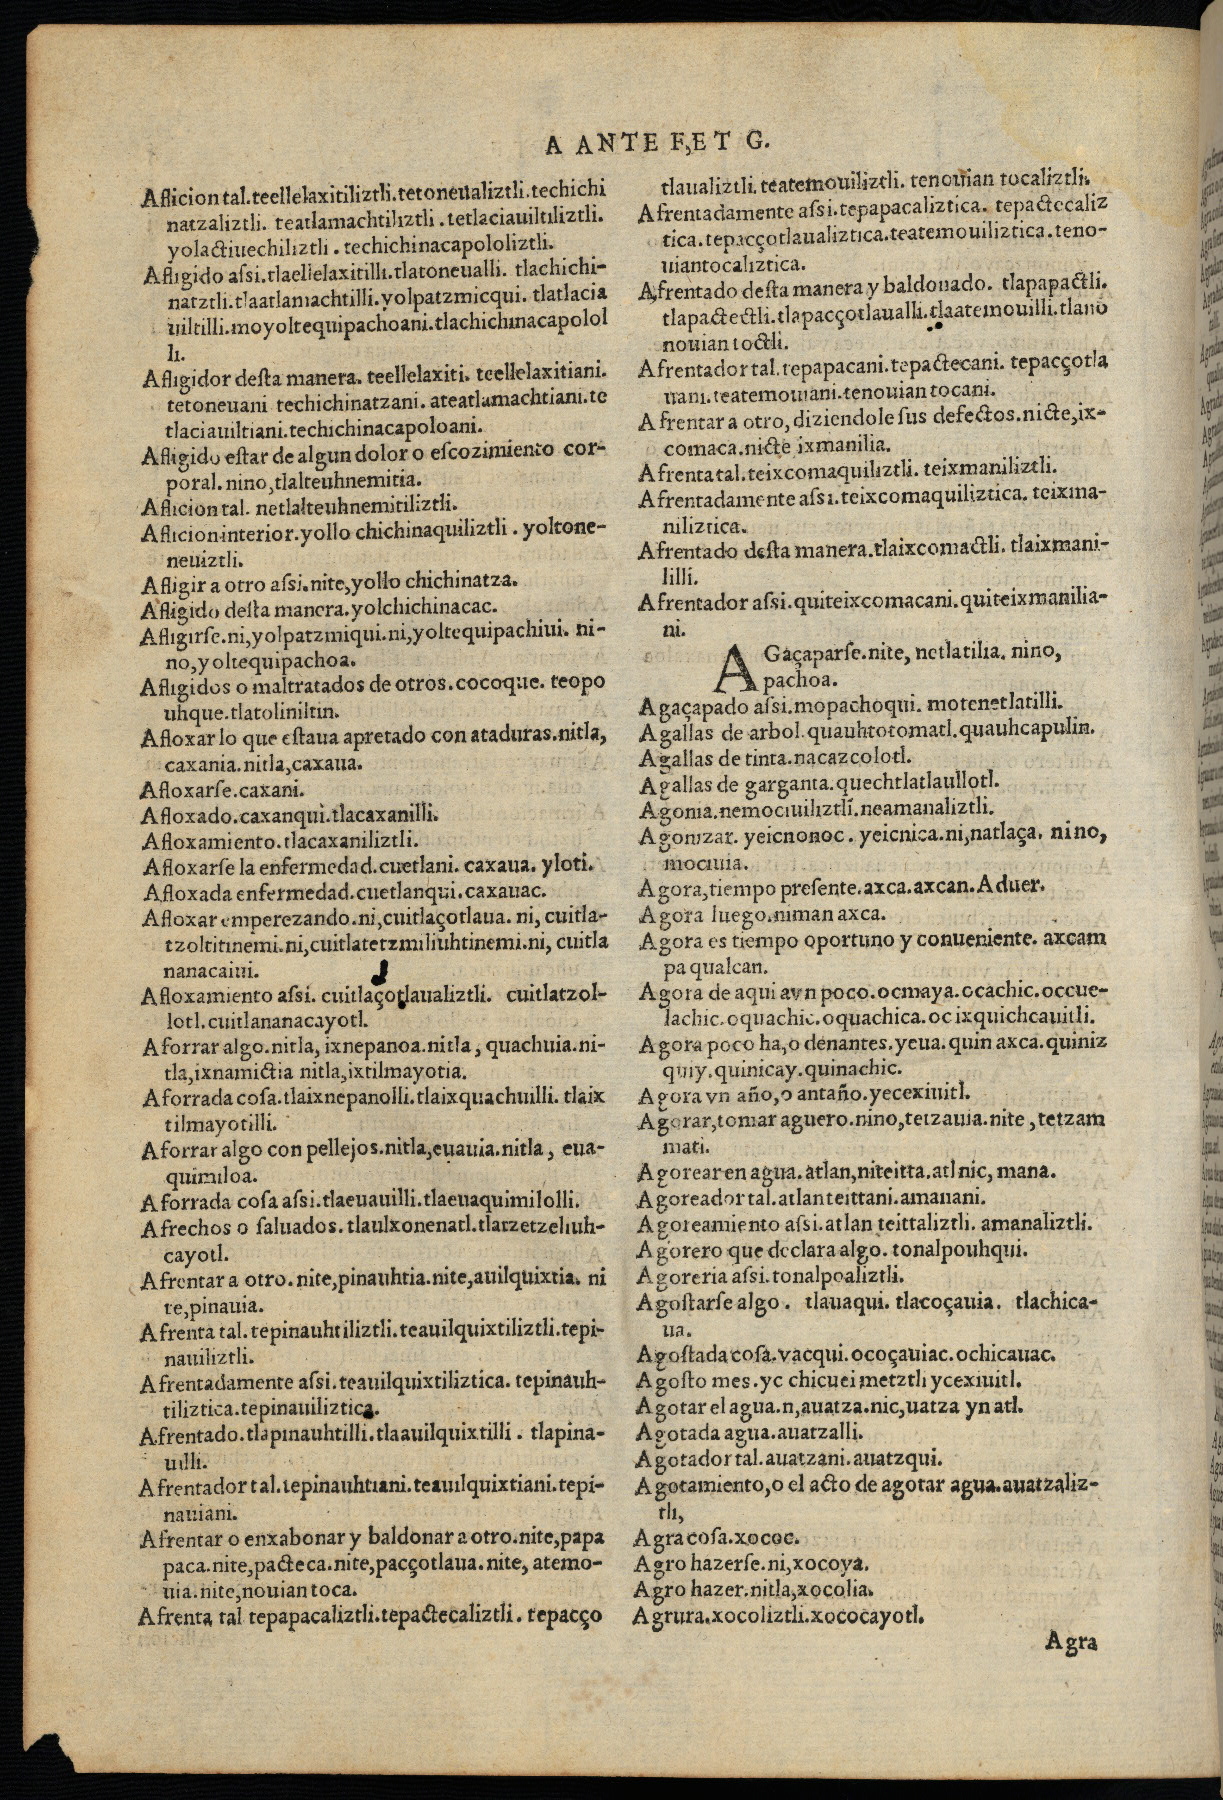 A ANTE F, ET G.
Aflicion tal. teellelaxitiliztli. tetoneualiztli. techichi
natzaliztli. teatlamachtiliztli. tetlaciauiltiliztli.
yolactiuechiliztli. techichinacapololiztli.
Afligido assi. tlaellelaxitilli. tlatoneualli. tlachichi-
natztli. tlaatlamachtilli. yolpatzmicqui. tlatlacia
uiltilli. moyoltequipachoani. tlachichinacapolol
li.
Afligidor desta manera. teellelaxiti. teellelaxitiani.
tetoneuani techichinatzani. ateatlamachtiani. te
tlaciauiltiani. techichinacapoloani.
Afligido estar de algun dolor o escozimiento cor-
poral. nino, tlalteuhnemitia.
Aflicion tal. netlalteuhnemitiliztli.
Aflicion interior. yollo chichinaquiliztli. yoltone-
neuiztli.
Afligir a otro assi. nite, yollo chichinatza.
Afligido desta manera. yolchichinacac.
Afligirse. ni, yolpatzmiqui. ni, yoltequipachiui. ni-
no, yoltequipachoa.
Afligidos o maltratados de otros. cocoque. teopo
uhque. tlatoliniltin.
Afloxar lo que estaua apretado con ataduras. nitla,
caxania. nitla, caxaua.
Afloxarse. caxani.
Afloxado. caxanqui. tlacaxanilli.
Afloxamiento. tlacaxaniliztli.
Afloxarse la enfermedad. cuetlani. caxaua. yloti.
Afloxada enfermedad. cuetlanqui. caxauac.
Afloxar emperezando. ni, cuitlaçotlaua. ni, cuitla-
tzoltitinemi. ni, cuitlatetzmiliuhtinemi. ni, cuitla
nanacaiui.
Afloxamiento assi. cuitlaçotlaualiztli. cuitlatzol-
lotl. cuitlananacayotl.
Aforrar algo. nitla, ixnepanoa. nitla, quachuia. ni-
tla, ixnamictia nitla, ixtilmayotia.
Aforrada cosa. tlaixnepanolli. tlaixquachuilli. tlaix
tilmayotilli.
Aforrar algo con pellejos. nitla, euauia. nitla, eua-
quimiloa.
Aforrada cosa assi. tlaeuauilli. tlaeuaquimilolli.
Afrechos o saluados. tlaulxonenatl. tlatzetzeliuh-
cayotl.
Afrentar a otro. nite, pinauhtia. nite, auilquixtia. ni
te, pinauia.
Afrenta tal. tepinauhtiliztli. teauilquixtiliztli. tepi-
nauiliztli.
Afrentadamente assi. teauilquixtiliztica. tepinauh-
tiliztica. tepinauiliztica.
Afrentado. tlapinauhtilli. tlaauilquixtilli. tlapina-
uilli.
Afrentador tal. tepinauhtiani. teauilquixtiani. tepi-
nauiani.
Afrentar o enxabonar y baldonar a otro. nite, papa
paca. nite, pacteca. nite, pacçotlaua. nite, atemo-
uia. nite, nouian toca.
Afrenta tal tepapacaliztli. tepactecaliztli. tepacço
tlaualiztli. teatemouiliztli. tenouian tocaliztli.
Afrentadamente assi. tepapacaliztica. tepactecaliz
tica. tepacçotlaualiztica. teatemouiliztica. teno-
uiantocaliztica.
Afrentado desta manera y baldonado. tlapapactli.
tlapactectli. tlapacçotlaualli. tlaatemouilli. tlano
nouian toctli.
Afrentador tal. tepapacani. tepactecani. tepacçotla
uani. teatemouiani. tenouian tocani.
Afrentar a otro, diziendole sus defectos. nicte, ix-
comaca. nicte ixmanilia.
Afrenta tal. teixcomaquiliztli. teixmaniliztli.
Afrentadamente assi. teixcomaquiliztica. teixma-
niliztica.
Afrentado desta manera. tlaixcomactli. tlaixmani-
lilli.
Afrentador assi. quiteixcomacani. quiteixmanilia-
ni.
AGaçaparse. nite, netlatilia. nino,
pachoa.
Agaçapado assi. mopachoqui. motenetlatilli.
Agallas de arbol. quauhtotomatl. quauhcapulin.
Agallas de tinta. nacazcolotl.
Agallas de garganta. quechtlatlaullotl.
Agonia. nemociuiliztli. neamanaliztli.
Agonizar. yeicnonoc. yeicnica. ni, natlaça. nino,
mociuia.
Agora, tiempo presente. axca. axcan. Aduer.
Agora luego. niman axca.
Agora es tiempo oportuno y conueniente. axcam
pa qualcan.
Agora de aqui a vn poco. ocmaya. ocachic. occue-
lachic. oquachic. oquachica. oc ixquichcauitli.
Agora poco ha, o denantes. yeua. quin axca. quiniz
quiy. quinicay. quinachic.
Agora vn año, o antaño. yecexiuitl.
Agorar, tomar aguero. nino, tetzauia. nite, tetzam
mati.
Agorear en agua. atlan, niteitta. atl nic, mana.
Agoreador tal. atlan teittani. amanani.
Agoreamiento assi. atlan teittaliztli. amanaliztli.
Agorero que declara algo. tonalpouhqui.
Agoreria assi. tonalpoaliztli.
Agostarse algo. tlauaqui. tlacoçauia. tlachica-
ua.
Agostada cosa. vacqui. ocoçauiac. ochicauac.
Agosto mes. yc chicuei metztli ycexiuitl.
Agotar el agua. n, auatza. nic, uatza yn atl.
Agotada agua. auatzalli.
Agotador tal. auatzani. auatzqui.
Agotamiento, o el acto de agotar agua. auatzaliz-
tli,
Agra cosa. xococ.
Agro hazerse. ni, xocoya.
Agro hazer. nitla, xocolia.
Agrura. xocoliztli. xococayotl.
Agra